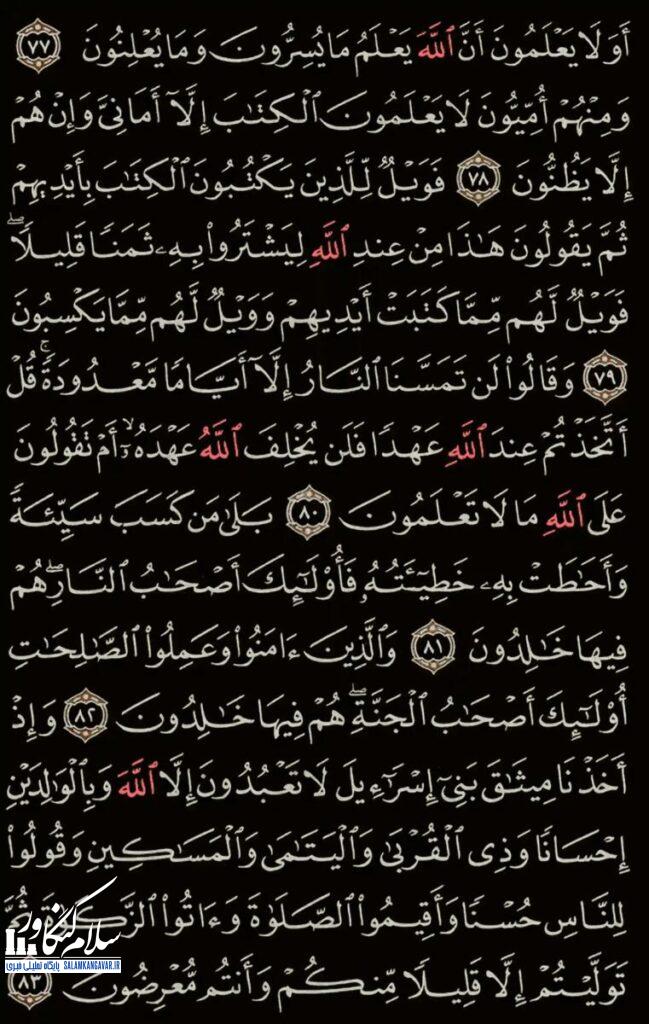 أَوَلَا يَعْلَمُونَ أَنَّ ٱللَّهَ يَعْلَمُ مَا يُسِرُّونَ وَمَا يُعْلِنُونَ ٧٧
وَمِنْهُمْ أُمِّيُّونَ لَا يَعْلَمُونَ ٱلْكِتَٰبَ إِلَّآ أَمَانِىَّ وَإِنْ هُمْ
إِلَّا يَظُنُّونَ ٧٨ فَوَيْلٌ لِّلَّذِينَ يَكْتُبُونَ ٱلْكِتَٰبَ بِأَيْدِيهِمْ
ثُمَّ يَقُولُونَ هَٰذَا مِنْ عِندِ ٱللَّهِ لِيَشْتَرُوا۟ بِهِۦ ثَمَنًا قَلِيلًا ۖ
فَوَيْلٌ لَّهُم مِّمَّا كَتَبَتْ أَيْدِيهِمْ وَوَيْلٌ لَّهُم مِّمَّا يَكْسِبُونَ
٧٩ وَقَالُوا۟ لَن تَمَسَّنَا ٱلنَّارُ إِلَّآ أَيَّامًا مَّعْدُودَةً ۚ قُلْ
أَتَّخَذْتُمْ عِندَ ٱللَّهِ عَهْدًا فَلَن يُخْلِفَ ٱللَّهُ عَهْدَهُۥٓ ۖ أَمْ تَقُولُونَ
عَلَى ٱللَّهِ مَا لَا تَعْلَمُونَ ٨٠ بَلَىٰ مَن كَسَبَ سَيِّئَةً
وَأَحَٰطَتْ بِهِۦ خَطِيٓـَٔتُهُۥ فَأُو۟لَٰٓئِكَ أَصْحَٰبُ ٱلنَّارِ ۖ هُمْ
فِيهَا خَٰلِدُونَ ٨١ وَٱلَّذِينَ ءَامَنُوا۟ وَعَمِلُوا۟ ٱلصَّٰلِحَٰتِ
أُو۟لَٰٓئِكَ أَصْحَٰبُ ٱلْجَنَّةِ ۖ هُمْ فِيهَا خَٰلِدُونَ ٨٢ وَإِذْ
أَخَذْنَا مِيثَٰقَ بَنِىٓ إِسْرَٰٓءِيلَ لَا تَعْبُدُونَ إِلَّا ٱللَّهَ وَبِٱلْوَٰلِدَيْنِ
إِحْسَانًا وَذِى ٱلْقُرْبَىٰ وَٱلْيَتَٰمَىٰ وَٱلْمَسَٰكِينِ وَقُولُوا۟
لِلنَّاسِ حُسْنًا وَأَقِيمُوا۟ ٱلصَّلَوٰةَ وَءَاتُوا۟ ٱلزَّكَوٰةَ ثُمَّ
تَوَلَّيْتُمْ إِلَّا قَلِيلًا مِّنكُمْ وَأَنتُم مُّعْرِضُونَ ٨٣
سلام کنگاور
پایگاه تحلیلی خبری SALAMKANGAVAR.IR